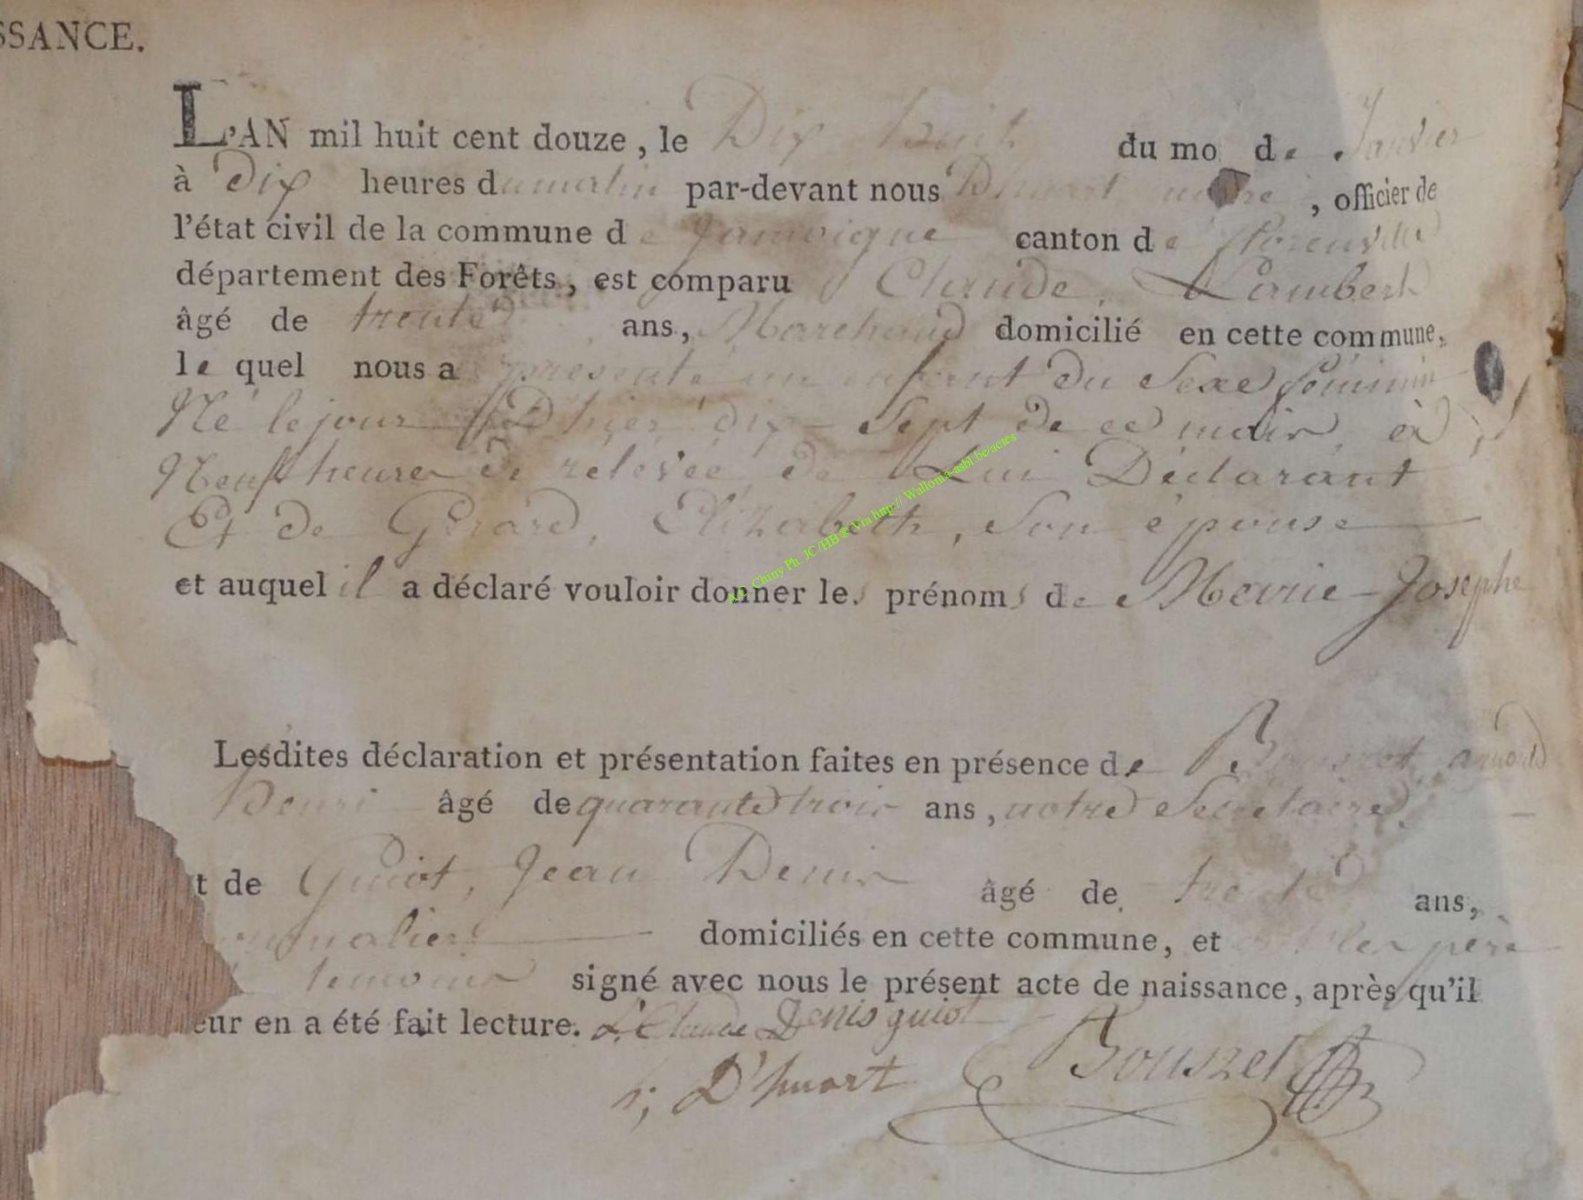 SSANCE.
L'AN mil huit cent douze, le Dix huit du mo de Janvier
à Dix heures du matin par-devant nous D'huart maire, officier de
l'état civil de la commune de Jamoigne canton de florenville
département des Forêts, est comparu Claude, Lambert
âgé de trente ans, Marchand domicilié en cette commune,
le quel nous a présenté un enfant du Sexe féminin
Né le jour D'hier dix-Sept de ce mois, à
Neuf heures de relevée de Lui Déclarant
Et de Gérard, Elizabeth, Son épouse
et auquel il a déclaré vouloir donner les prénoms de Marie-Josephe
Lesdites déclaration et présentation faites en présence de Bouszet arnould
Henri âgé de quarante trois ans, notre Secretaire,
t de Guiot, Jean Denis âgé de trente ans,
domiciliés en cette commune, et les père
témoins signé avec nous le présent acte de naissance, après qu'il
eur en a été fait lecture. L. Claude Denis guiot
D'huart Bouszet
Chiny Ph. JC/HB © Via http:// Wallonia-asbl.be/actes